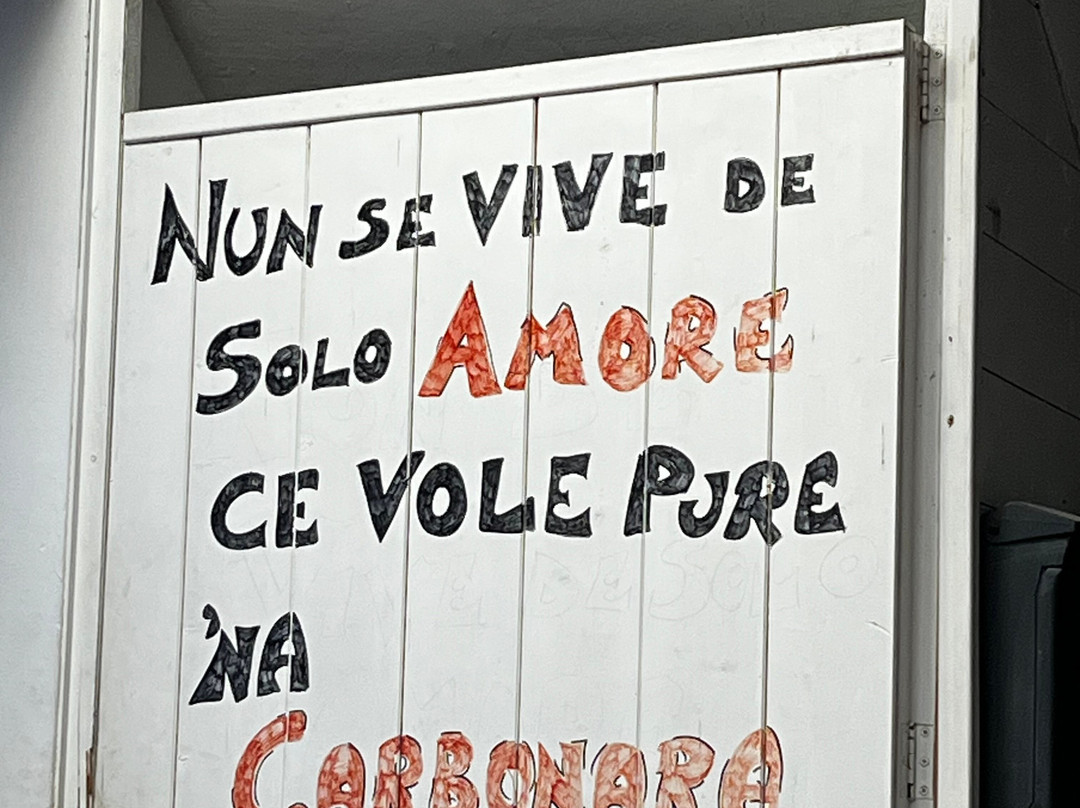 NUN SE VIVE DE
SOLO AMORE
CE VOLE PURE
'NA
CARBONARA